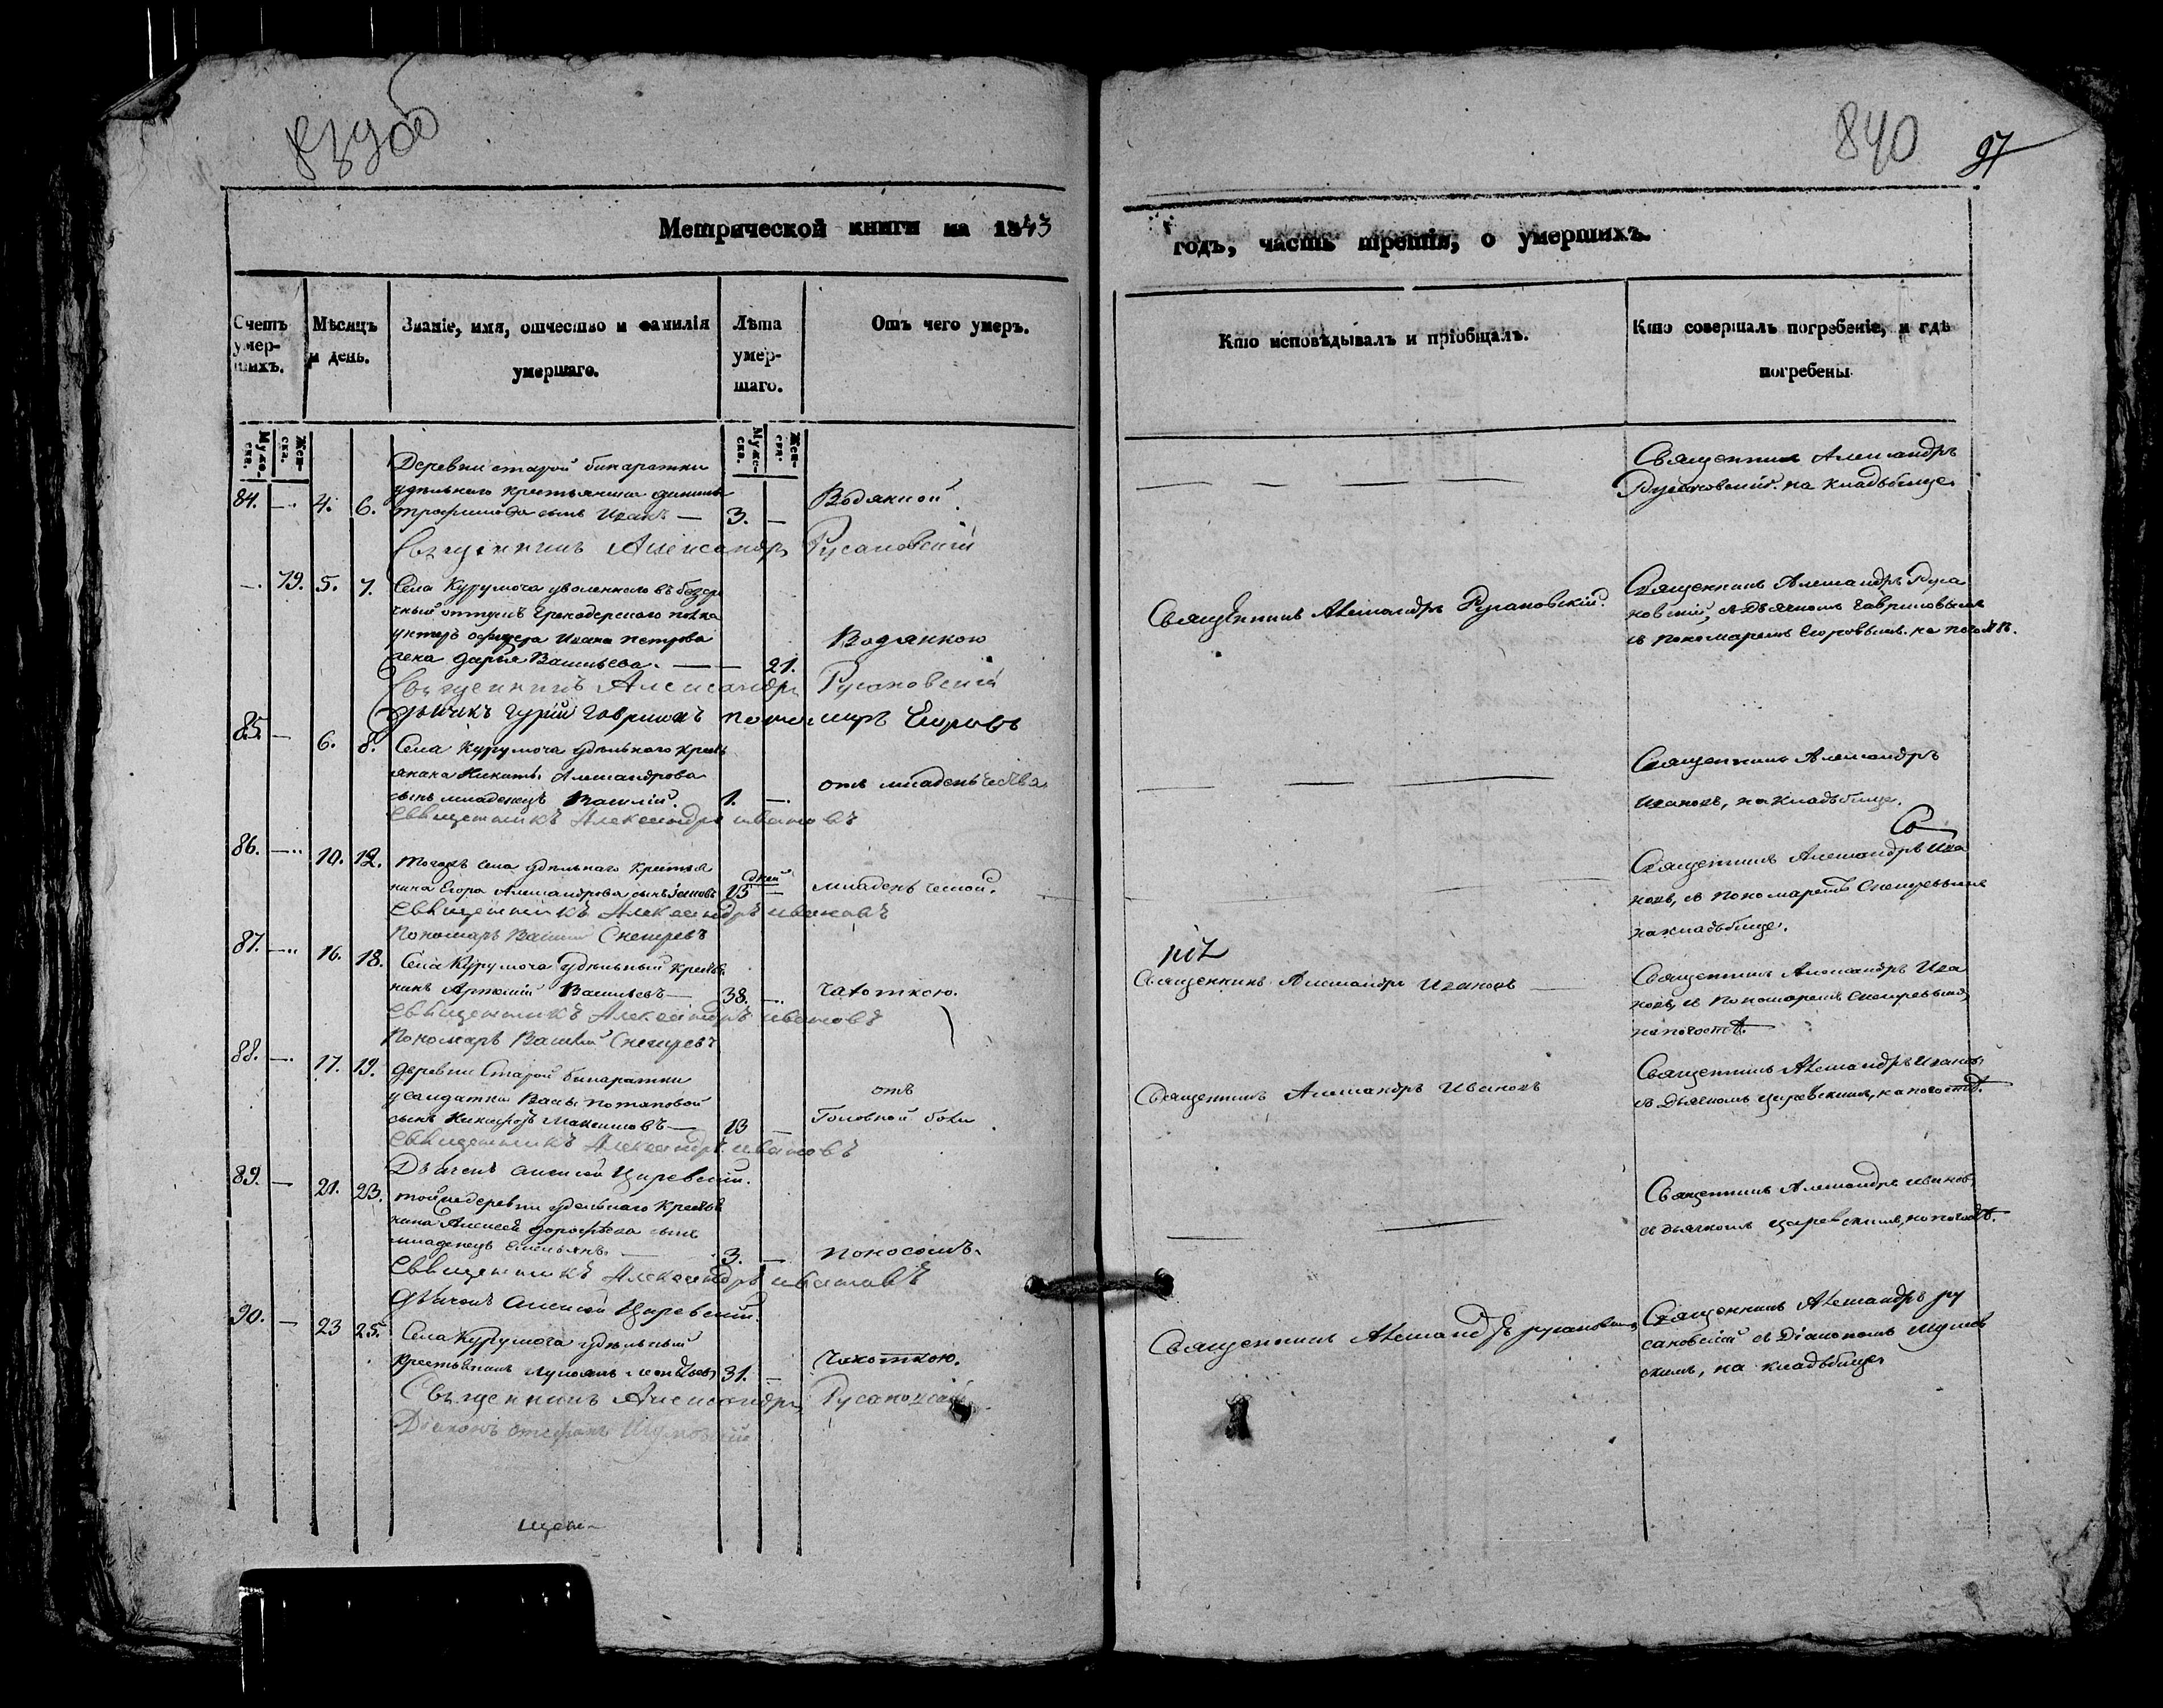 839об
840
97
Метрической книги на 1843
годъ, часть третія, о умершихъ.
Счетъ умер-шихъ.
Мѣсяцъ и день.
Званіе, имя, отчество и фамилія умершаго.
Лѣта умер-шаго.
Отъ чего умеръ.
Кто исповѣдывалъ и пріобщалъ.
Кто совершалъ погребеніе, и гдѣ погребены.
Муже-ска.
Жен-ска.
Муже-ска.
Жен-ск.
Деревни старой бинаратки
84. — 4. 6. удѣльнаго крестьянина
Трофимова сынъ Иванъ — 3. — Водяной.
Священникъ Александръ
Русановскій. на кладбище.
Священникъ Александръ Русановскій
—. 79. 5. 7. Села Курумоча уволеннаго въ безсро
чный отпускъ Гренадерскаго полка
унтеръ офицера Ивана Петрова
жена Дарья Васильева. — — 21. Водянкою
Священникъ Александръ Русановскій.
Священникъ Александръ Руса
новскій, съ Дьячкомъ Гавриловымъ
и пономаремъ Егоровымъ. на погостѣ.
Священникъ Александръ Русановскій
Дьячикъ Гурій Гавриловъ пономарь Егоровъ
85. — 6. 8. Села Курумоча удѣльнаго кресть
янина Никиты Александрова
сынъ младенецъ Василій. 1. —. отъ младенчества.
Священникъ Александръ
Ивановъ, на кладбище.
Священникъ Александръ ивановъ
86. —. 10. 12. тогожъ села удѣльнаго крестья
нина Егора Александрова сынъ 15 дней — младенческой.
Священникъ Александръ Ива
новъ, съ пономаремъ Снегиревымъ
на кладбище.
Священникъ Александръ ивановъ
Пономарь Василій Снегиревъ
87. —. 16. 18. Села Курумоча удѣльный крестья
нинъ Артемій Васильевъ — 38. —. Чахоткою.
Священникъ Александръ Ивановъ —
Священникъ Александръ Ива
новъ, съ Пономаремъ Снегиревымъ,
на погостѣ.
Священникъ Александръ ивановъ
Пономарь Василій Снегиревъ
88. —. 17. 19. деревни Старой бинаратки
у солдатки Потаповой
сынъ Никифоръ Максимовъ — 13 — отъ
Головной боли.
Священникъ Александръ Ивановъ
Священникъ Александръ Ивановъ
съ Дьячкомъ Царевскимъ, на погостѣ.
Священникъ Александръ ивановъ
Дьячекъ Алексѣй Царевскій.
89. — 21. 23. тойже деревни удѣльнаго крестья
нина Алексѣя Дорофѣева сынъ
младенецъ Емельянъ. — 3. — поносомъ.
Священникъ Александръ ивановъ
съ дьячкомъ Царевскимъ, на погостѣ.
Священникъ Александръ ивановъ
Дьячекъ Алексѣй Царевскій.
90. — 23 25. Села Курумоча удѣльный
крестьянинъ 31. — Чахоткою.
Священникъ Александръ русановскій
Священникъ Александръ ру
сановскій съ Діакономъ Шумов
скимъ, на кладбище
Священникъ Александръ Русановскій
Діаконъ Стефанъ Шумовскій